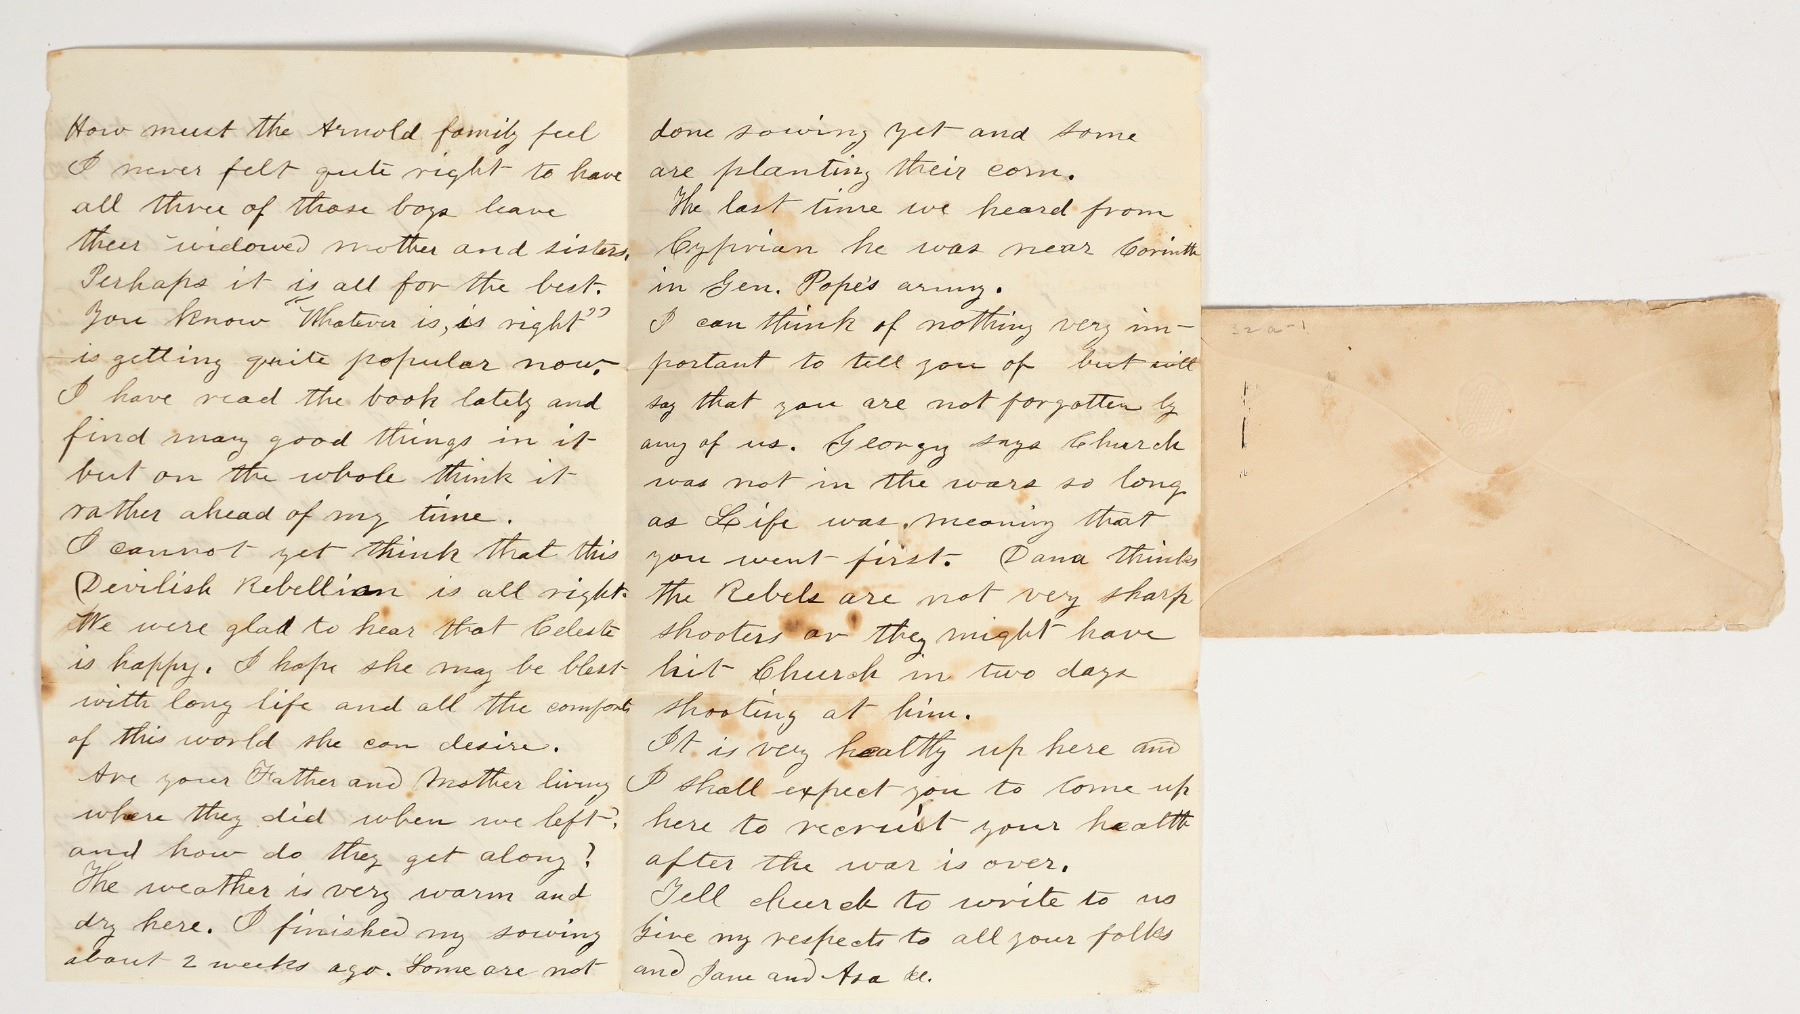 How must the Arnold family feel
I never felt quite right to have
all three of those boys leave
their widowed mother and sisters.
Perhaps it is all for the best.
You know "Whatever is, is right"
is getting quite popular now.
I have read the book lately and
find many good things in it
but on the whole think it
rather ahead of my time.
I cannot yet think that this
Devilish Rebellion is all right.
We were glad to hear that Celeste
is happy. I hope she may be blest
with long life and all the comforts
of this world she can desire.
Are your Father and Mother living
where they did when we left?
and how do they get along?
The weather is very warm and
dry here. I finished my sowing
about 2 weeks ago. Some are not
done sowing yet and some
are planting their corn.
The last time we heard from
Cyprian he was near Corinth
in Gen. Pope's army.
I can think of nothing very im-
portant to tell you of but will
say that you are not forgotten by
any of us. Georgy says Church
was not in the wars so long
as Life was, meaning that
you went first. Dana thinks
the Rebels are not very sharp
shooters or they might have
hit Church in two days
shooting at him.
It is very healthy up here and
I shall expect you to come up
here to recruit your health
after the war is over.
Tell church to write to us
Give my respects to all your folks
and Jane and Asa &c.
32a-1